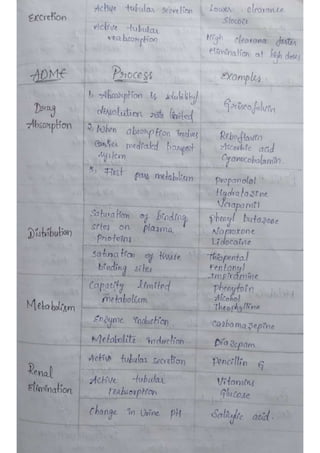 Excretion
Active tubular secretion
Lower clearance
Active tubular
reabsorption
High clearance faster
elimination at high doses
ADME Process Examples
Drug
Absorption
1. Absorption is solubility/
dissolution rate limited
Griseofulvin
2. When absorption involves
carrier mediated transport
system
Riboflavin
Ascorbic acid
Cyanocobalamin.
3. First pass metabolism
Propanolol
Hydralazine
Verapamil
Distribution
Saturation of binding
sites on plasma
proteins
Phenyl butazone
Naproxone
Lidocaine
Saturation of tissue
binding sites
Thiopental
Fentanyl
Imipramine
Metabolism
Capacity limited
metabolism
Phenytoin
Alcohol
Theophylline
Enzyme induction
Carbamazepine
Metabolite induction
Diazepam
Renal
Elimination
Active tubular secretion
Pencillin G
Active tubular
reabsorption
Vitamins
Glucose
Change in Urine pH
Salicylic acid.